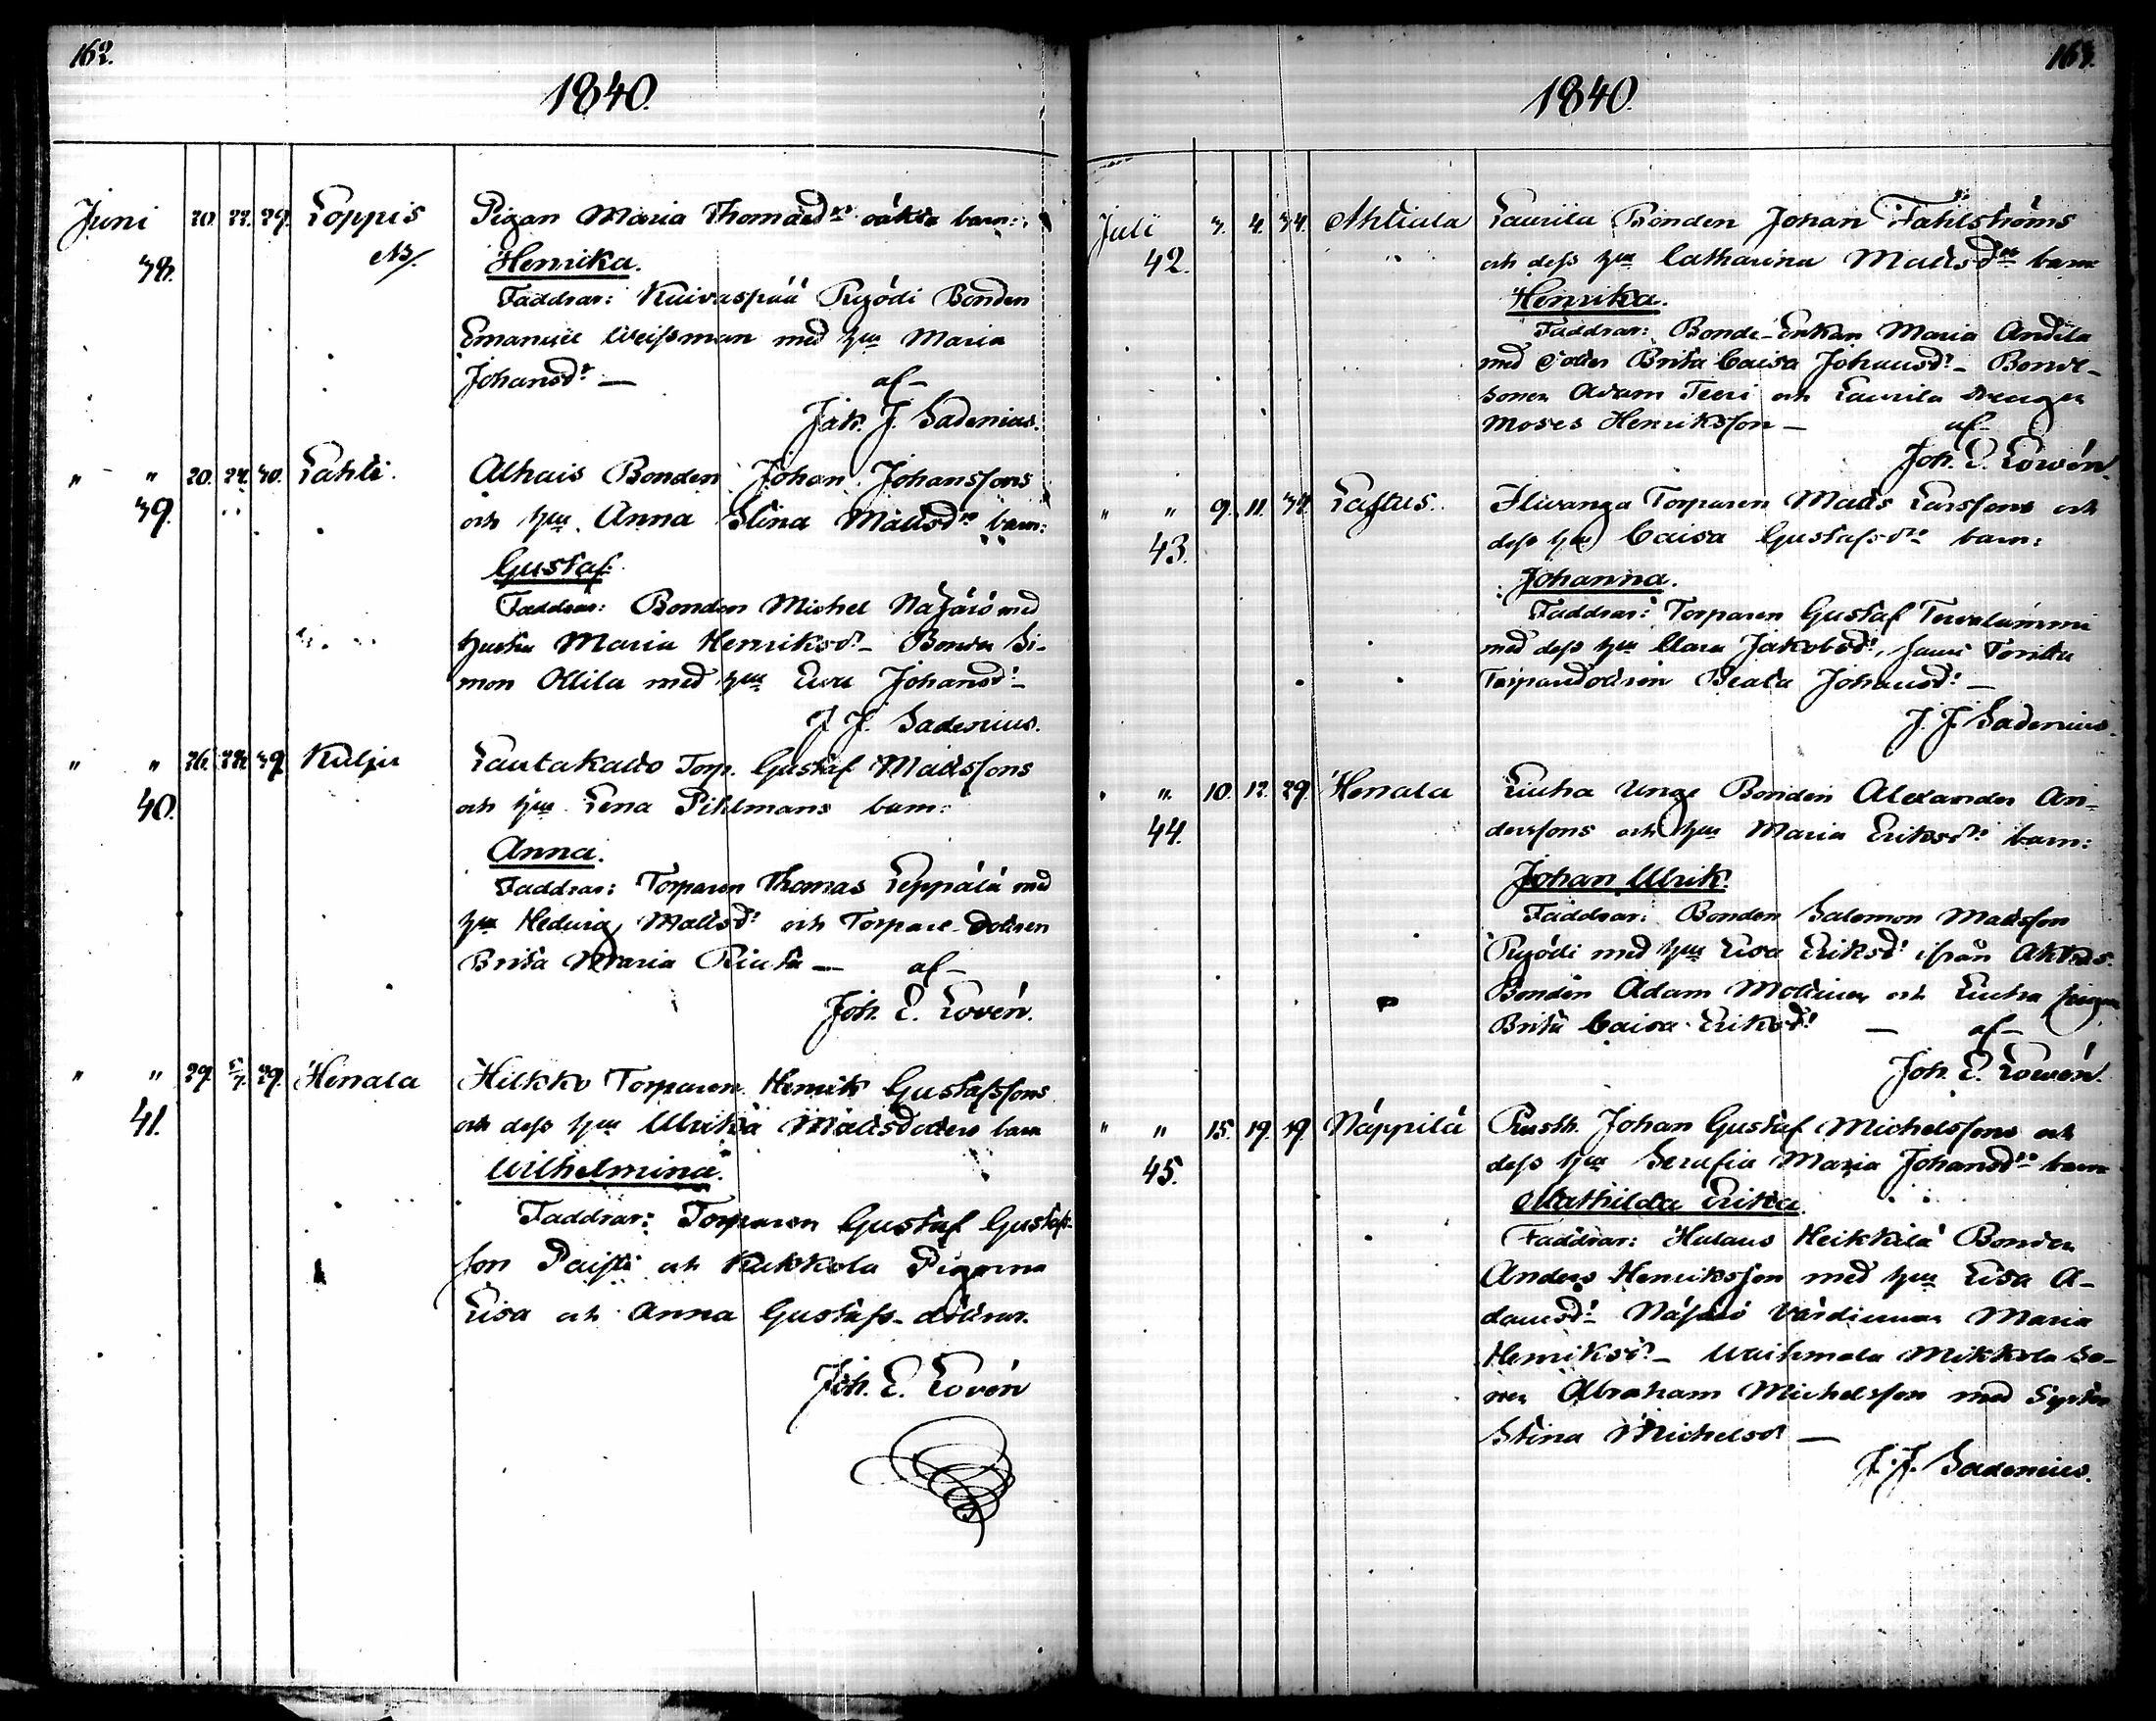 162.
1840.
Juni 20. 22. 29. Loppis Pigan Maria Thomasdrs oäkta barn:
38. Henrika.
Faddrar: Kuivaspää Ryödi Bonden
Emanuel Weissman med hu Maria
Johansdr — af—
Jak. J. Sadenius.
" " 20. 24. 30. Lahti. Alhais Bonden Johan Johanssons
39. och hu Anna Stina Mattsdrs barn:
Gustaf.
Faddrar: Bonden Michel med
hustru Maria Henriksdr — Bonden Si-
mon Ollila med hu Eva Johansdr —
J. J. Sadenius.
" " 26. 28. 39. Kulju Lautakatto Torp. Gustaf Mattssons
40. och hu Lena Pihlmans barn:
Anna.
Faddrar: Torparen Thomas Leppälä med
hu Hedvig Mattsdr och Torpare-dottren
Brita Maria — af—
Joh. E. Lovén.
" " 29. 5/7. 29. Henala Hilkko Torparen Henrik Gustafssons
41. och dess hu Ulrika Mattsdotters barn
Wilhelmina.
Faddrar: Torparen Gustaf Gustafs-
son och Kukkola Pigorna
Lisa och Anna Gustafs-döttrar.
Joh. E. Lovén
163.
1840.
Juli 3. 4. 34. Ahtiala Laurila Bonden Johan Fahlströms
42. och dess hu Catharina Mattsdrs barn
Henrika.
Faddrar: Bonde-Enkan Maria Andila
med dotter Brita Caisa Johansdr — Bonde-
sonen Adam Teeri och Laurila drengen
Moses Henriksson — af—
Joh. E. Lovén.
" " 9. 11. 34. Lastus. Ilivanga Torparen Matts Larssons och
43. dess hu Caisa Gustafsdrs barn:
Johanna.
Faddrar: Torparen Gustaf Tervalammi
med dess hu Clara Jakobsdr, samt
Beata Johansdr —
J. J. Sadenius.
" " 10. 12. 29. Henala Liuha Unge Bonden Alexander An-
44. derssons och hu Maria Eriksdrs barn:
Johan Ulrik.
Faddrar: Bonden Salomon Mattsson
Ryödi med hu Lisa Eriksdr ifrån
Bonden Adam och Liuha pigan
Brita Caisa Eriksdr — af—
Joh. E. Lovén.
" " 15. 19. 19. Näppilä Rusth. Johan Gustaf Michelssons och
45. dess hu Serafia Maria Johansdrs barn
Mathilda Erika.
Faddrar: Hulaus Heikkilä Bonden
Anders Henriksson med hu Lisa A-
damsdr — Värdinnan Maria
Henriksdr — Waihmala Mikkola So-
nen Abraham Michelsson med Syster
Stina Michelsdr —
J. J. Sadenius.